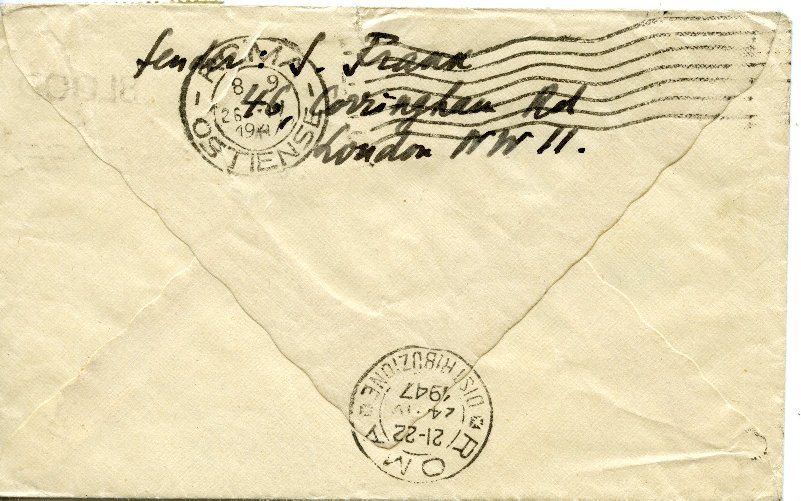 Sender: S. Fraad
46, Corringham Rd
London NW 11.
ROMA
8 9
1947
OSTIENSE
ROMA
21-22
24·IV
1947
DISTRIBUZIONE